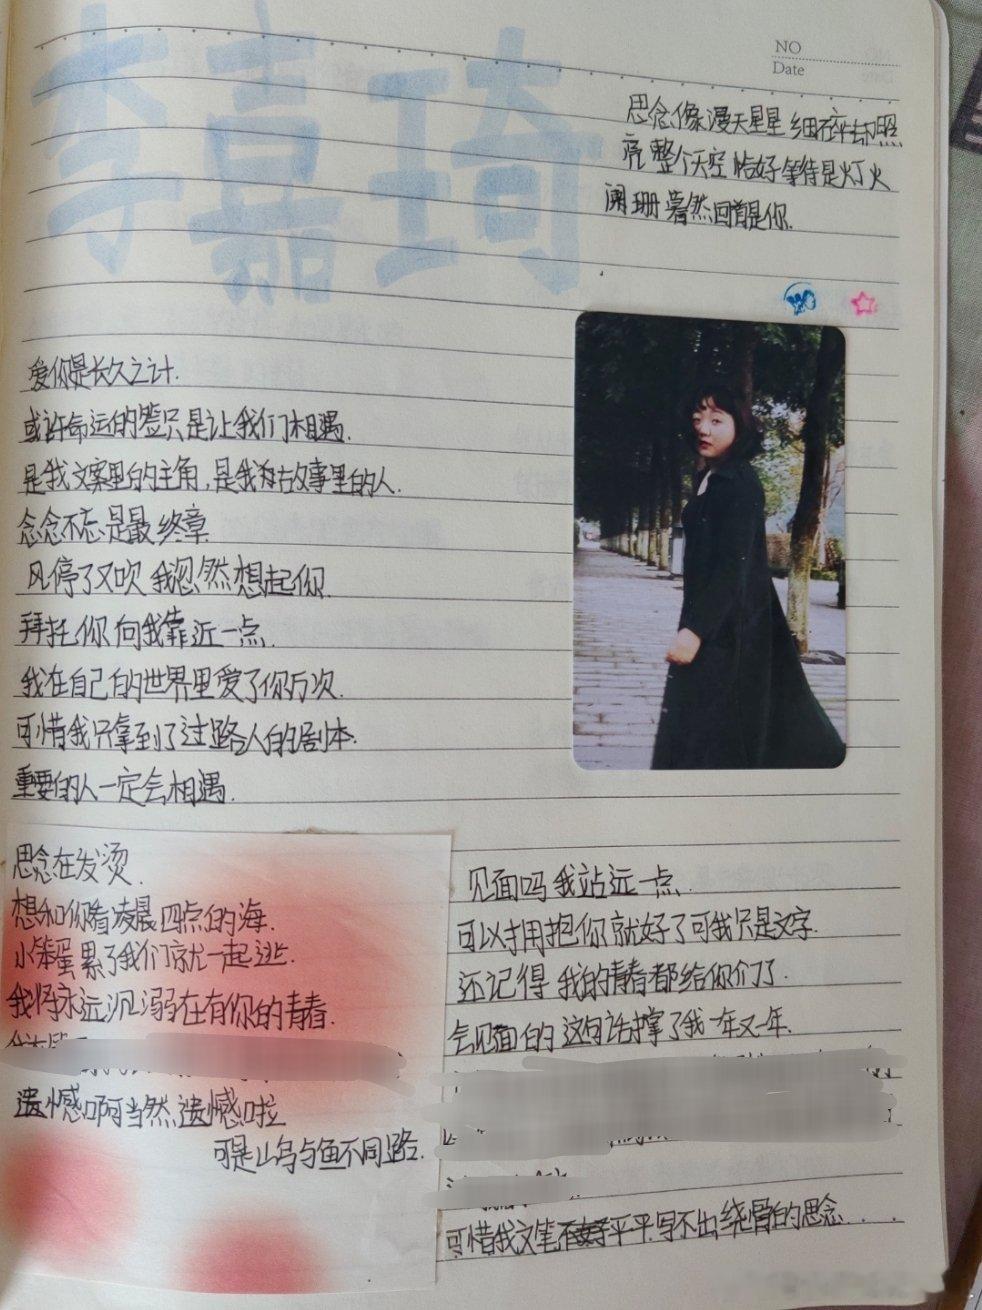 李嘉琦
NO
Date
思念像漫天星星 细碎却照
亮整个天空 恰好等待是灯火
阑珊 蓦然回首是你.
爱你是长久之计.
或许命运的签只是让我们相遇.
是我文案里的主角,是我故事里的人.
念念不忘是最终章
风停了又吹 我忽然想起你
拜托你向我靠近一点.
我在自己的世界里爱了你万次.
可惜我只拿到了过路人的剧本.
重要的人一定会相遇.
思念在发烫.
想和你看凌晨四点的海.
小笨蛋累了我们就一起逃.
我将永远沉溺在有你的青春.
遗憾啊当然遗憾啦
可是山鸟与鱼不同路.
见面吗 我站远一点.
可以拥抱你就好了可我只是文字.
还记得 我的青春都给你们了.
会见面的 这句话撑了我一年又一年.
可惜我文笔平平.写不出绕骨的思念...